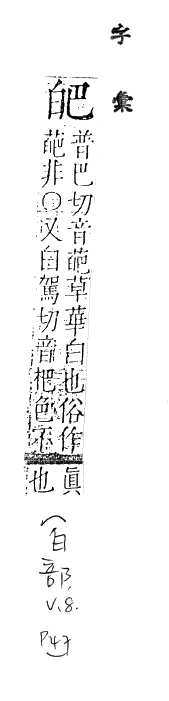 字彙
皅
普巴切音葩草華白也俗作
葩非〇又白駕切音杷色不
眞
也
(白
部,
V.8.
P47)